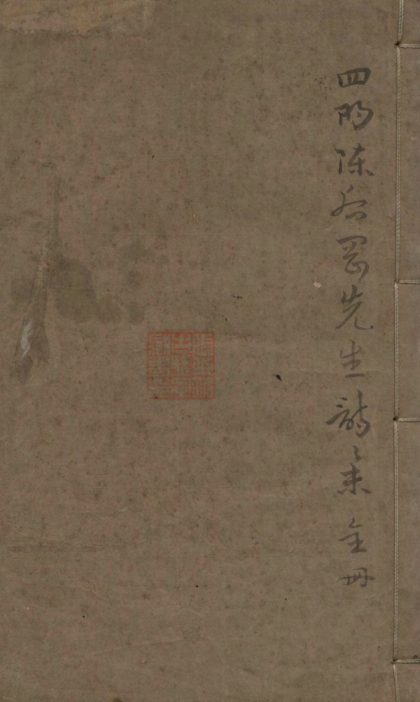 四明陳后岡先生詩集 全冊